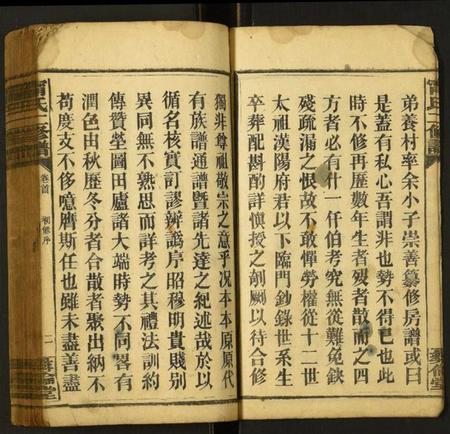 弟養村率余小子崇善纂修房譜或曰
是蓋有私心吾謂非也勢不得已也此
時不修再歷數年生者殁者散而之四
方者必有什一仟伯考究無從難免缺
殘疏漏之恨故不敢憚勞權從十二世
太祖漢陽府君以下臨門鈔錄世系生
卒葬配斟酌詳慎授之剞劂以待合修
獨非尊祖敬宗之意乎况本本原原代
有族譜通譜曁諸先達之紀述哉於以
循名核實訂謬辨譌序昭穆明貴賤别
異同無不熟思而詳考之其禮法訓約
傳贊塋圖田廬諸大端時勢不同畧有
潤色由秋歷冬分者合散者聚出納不
苟度支不侈噫臍斯任也雖未盡善盡
甯氏二修譜
卷首
彝倫堂
甯氏二修譜
彝倫堂